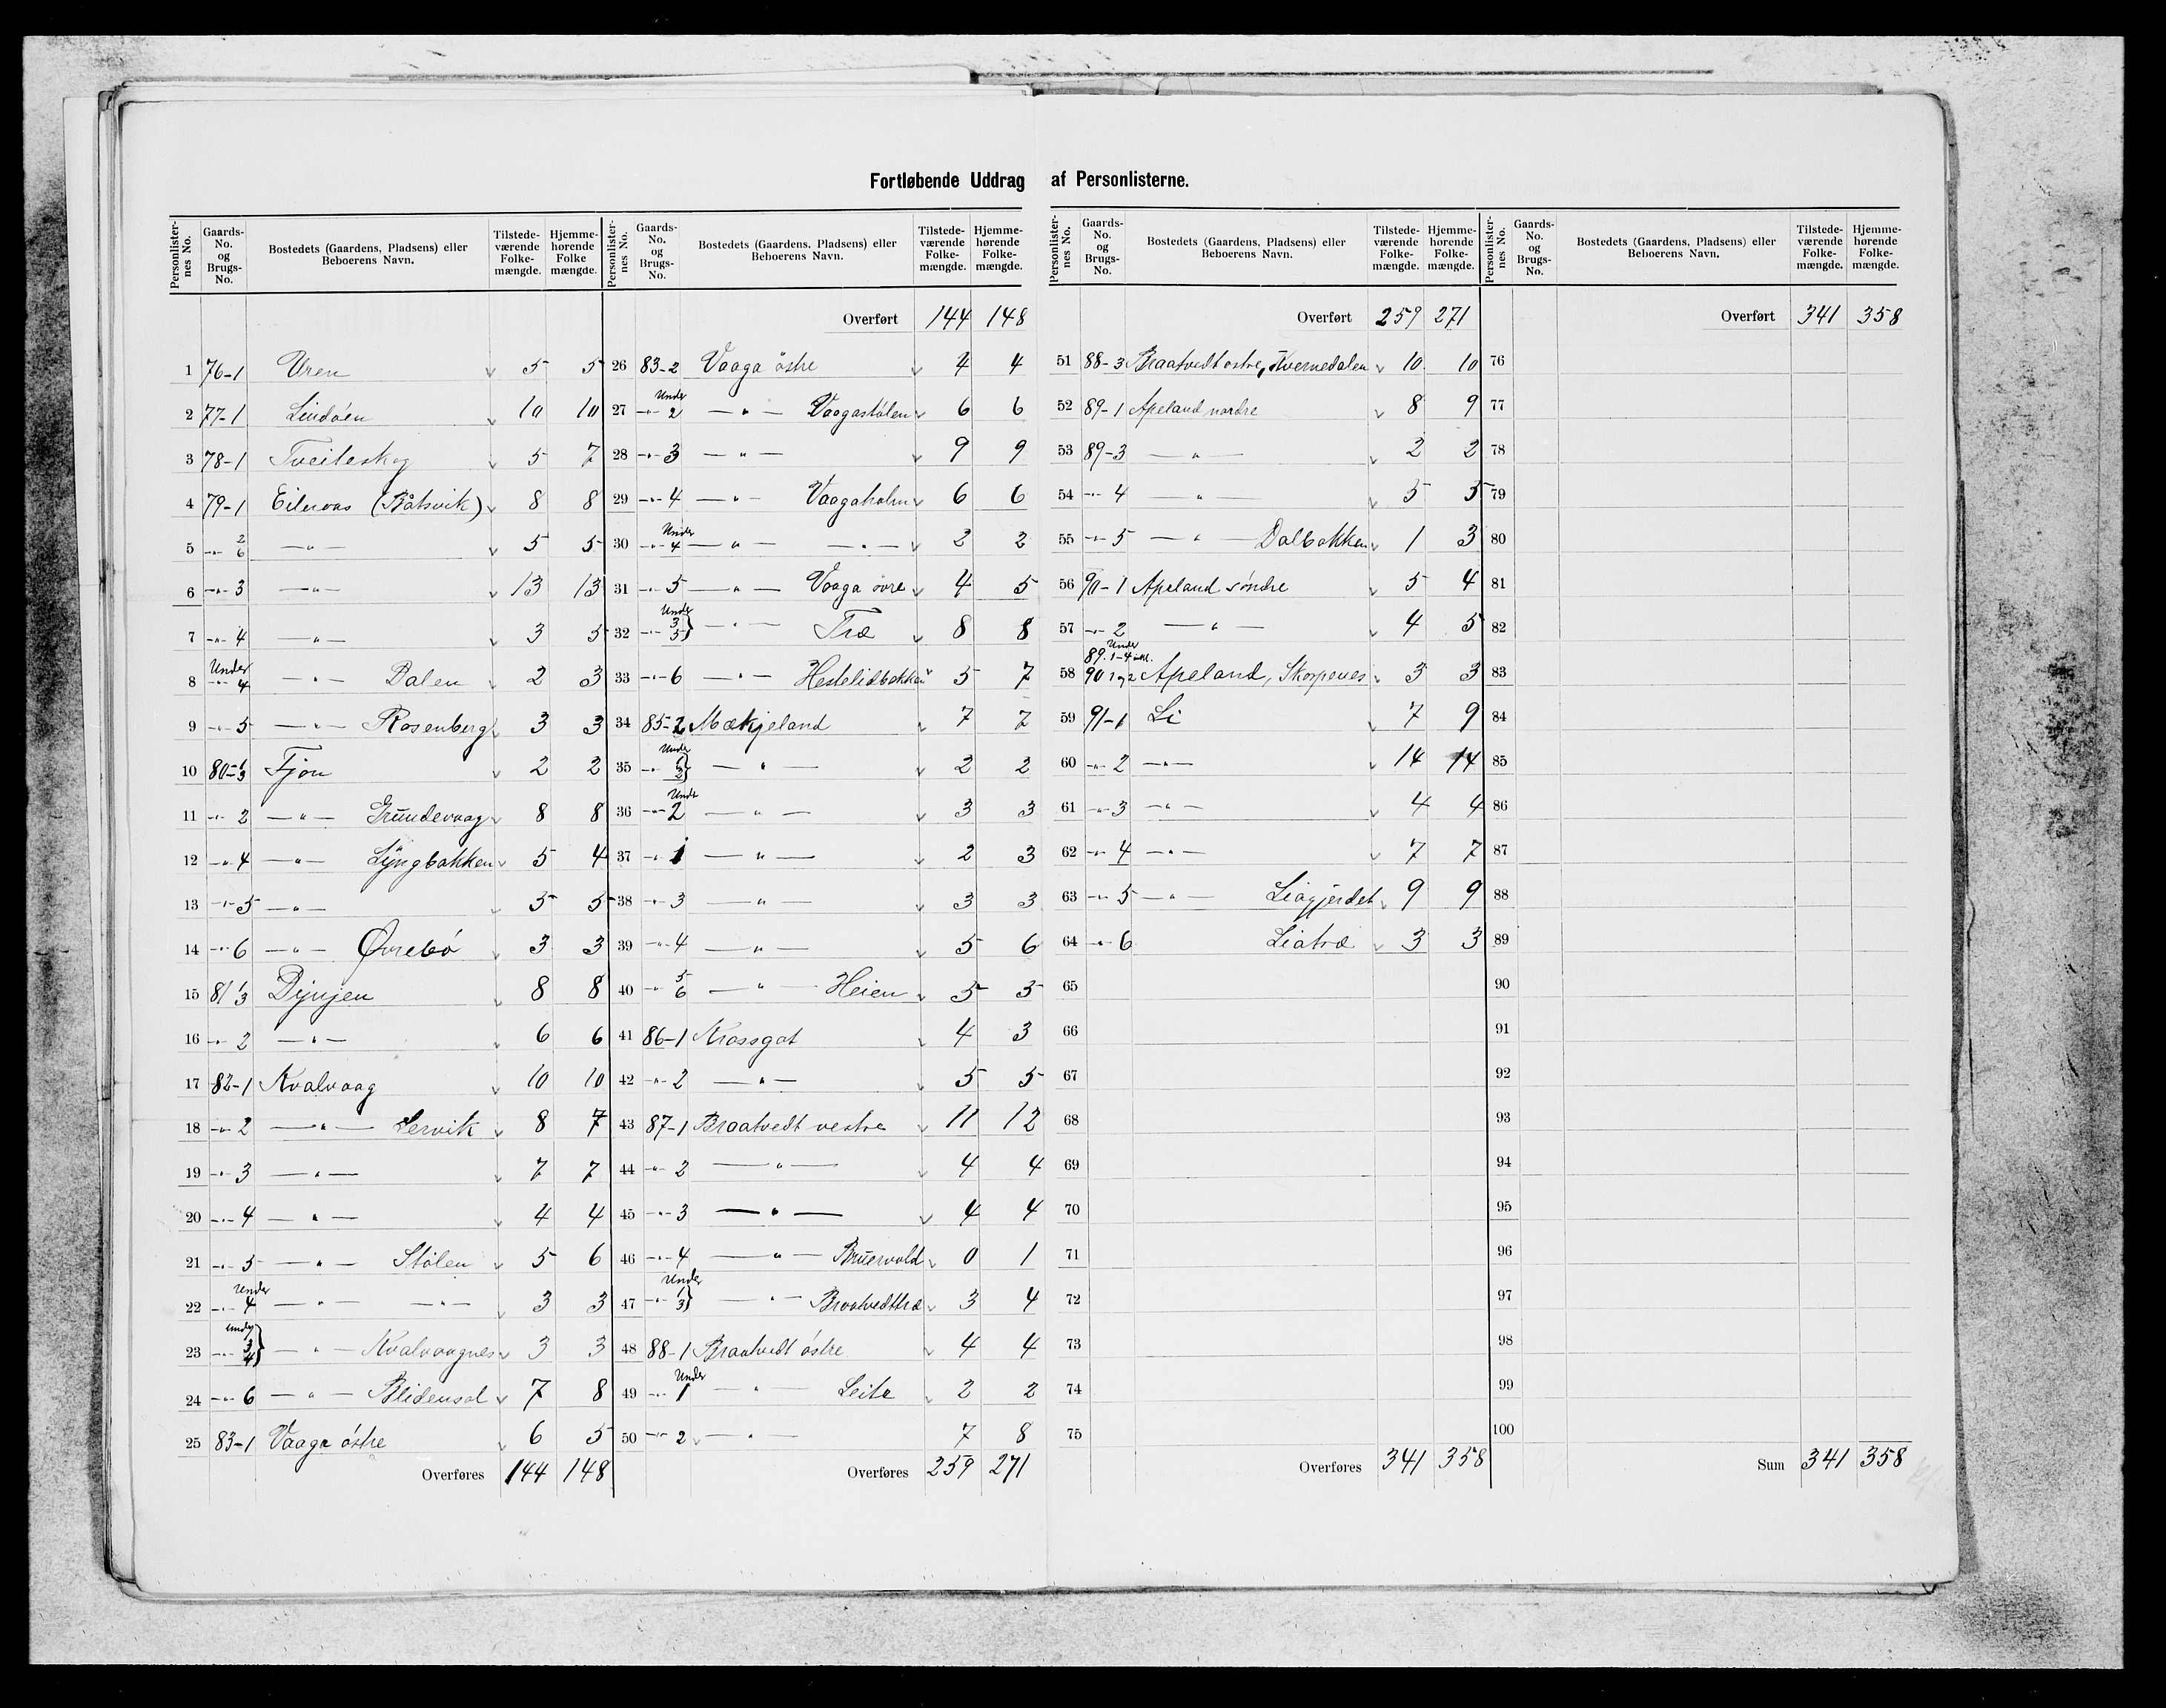 Fortløbende Uddrag af Personlisterne.
Personlisternes No. | Gaards-No. og Brugs-No. | Bostedets (Gaardens, Pladsens) eller Beboerens Navn. | Tilstedeværende Folkemængde. | Hjemmehørende Folkemængde.
1 76-1 Uren 5 5
2 77-1 Lindóen 10 10
3 78-1 Tveiteskog 5 7
4 79-1 Eileraas (Båtsvik) 8 8
5 -"- 2 6 -"- 5 5
6 -"- 3 -"- 13 13
7 -"- 4 -"- 3 5
8 Under -"- 4 -"- Dalen 2 3
9 -"- 5 -"- Rosenberg 3 3
10 80-1 3 Tjon 2 2
11 -"- 2 -"- Grundevaag 8 8
12 -"- 4 -"- Lyngbakken 5 4
13 -"- 5 -"- 5 5
14 -"- 6 -"- Øvrebö 3 3
15 81 1 3 Dynjen 8 8
16 -"- 2 -"- 6 6
17 82-1 Kvalvaag 10 10
18 -"- 2 -"- Lervik 8 7
19 -"- 3 -"- 7 7
20 -"- 4 -"- 4 4
21 -"- 5 -"- Stólen 5 6
22 Under -"- 4 -"- -"- 3 3
23 Under -"- 3 4} -"- Kvalvaagnes 3 3
24 -"- 6 -"- Blidensol 7 8
25 83-1 Vaaga óstre 6 5
Overføres 144 148
Overført 144 148
26 83-2 Vaaga östre 4 4
27 Under -"- 2 -"- Vaagastólen 6 6
28 -"- 3 -"- 9 9
29 -"- 4 -"- Vaagaholm 6 6
30 Under -"- 4 -"- -"- 2 2
31 -"- 5 -"- Vaaga ovre 4 5
32 Under -"- 3 5} -"- Træ 8 8
33 -"- 6 -"- Hestelidbakken 5 7
34 85-2 Mækjeland 7 7
35 Under -"- 1 2} -"- 2 2
36 Under -"- 2 -"- 3 3
37 -"- 1 -"- 2 3
38 -"- 3 -"- 3 3
39 -"- 4 -"- 5 6
40 -"- 5 6 -"- Heien 5 5
41 86-1 Krossgat 4 3
42 -"- 2 -"- 5 5
43 87-1 Braatvedt vestre 11 12
44 -"- 2 -"- 4 4
45 -"- 3 -"- 4 4
46 -"- 4 -"- Bruervold 0 1
47 Under -"- 1 3} -"- Braatvedttræ 3 4
48 88-1 Braatvedt óstre 4 4
49 Under -"- 1 -"- Leite 2 2
50 -"- 2 -"- 7 8
Overføres 259 271
Overført 259 271
51 88-3 Braatvedt ostre, Kvernedalen 10 10
52 89-1 Apeland nordre 8 9
53 89-3 -"- 2 2
54 -"- 4 -"- 5 5
55 -"- 5 -"- Dalbakken 1 3
56 90-1 Apeland söndre 5 4
57 -"- 2 -"- 4 5
58 Under 89. 1-4 inkl. 90 1 og 2 Apeland, Skorpenes 3 3
59 91-1 Li 7 9
60 -"- 2 -"- 14 14
61 -"- 3 -"- 4 4
62 -"- 4 -"- 7 7
63 -"- 5 -"- Liagjerdet 9 9
64 -"- 6 Liatræ 3 3
65
66
67
68
69
70
71
72
73
74
75
Overføres 341 358
Overført 341 358
76
77
78
79
80
81
82
83
84
85
86
87
88
89
90
91
92
93
94
95
96
97
98
99
100
Sum 341 358